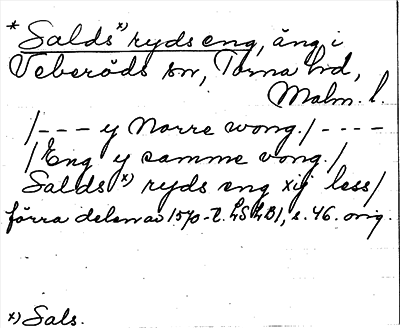 * Salds x) ryds eng, äng i
Veberöds sn, Torna hd,
Malm. l.
/--- y Norre wong./----
/Eng y samme vong./
Salds x) ryds eng xij less/
förra delen av 1570-t. LSLB1, s. 46. orig.
x) Sals.